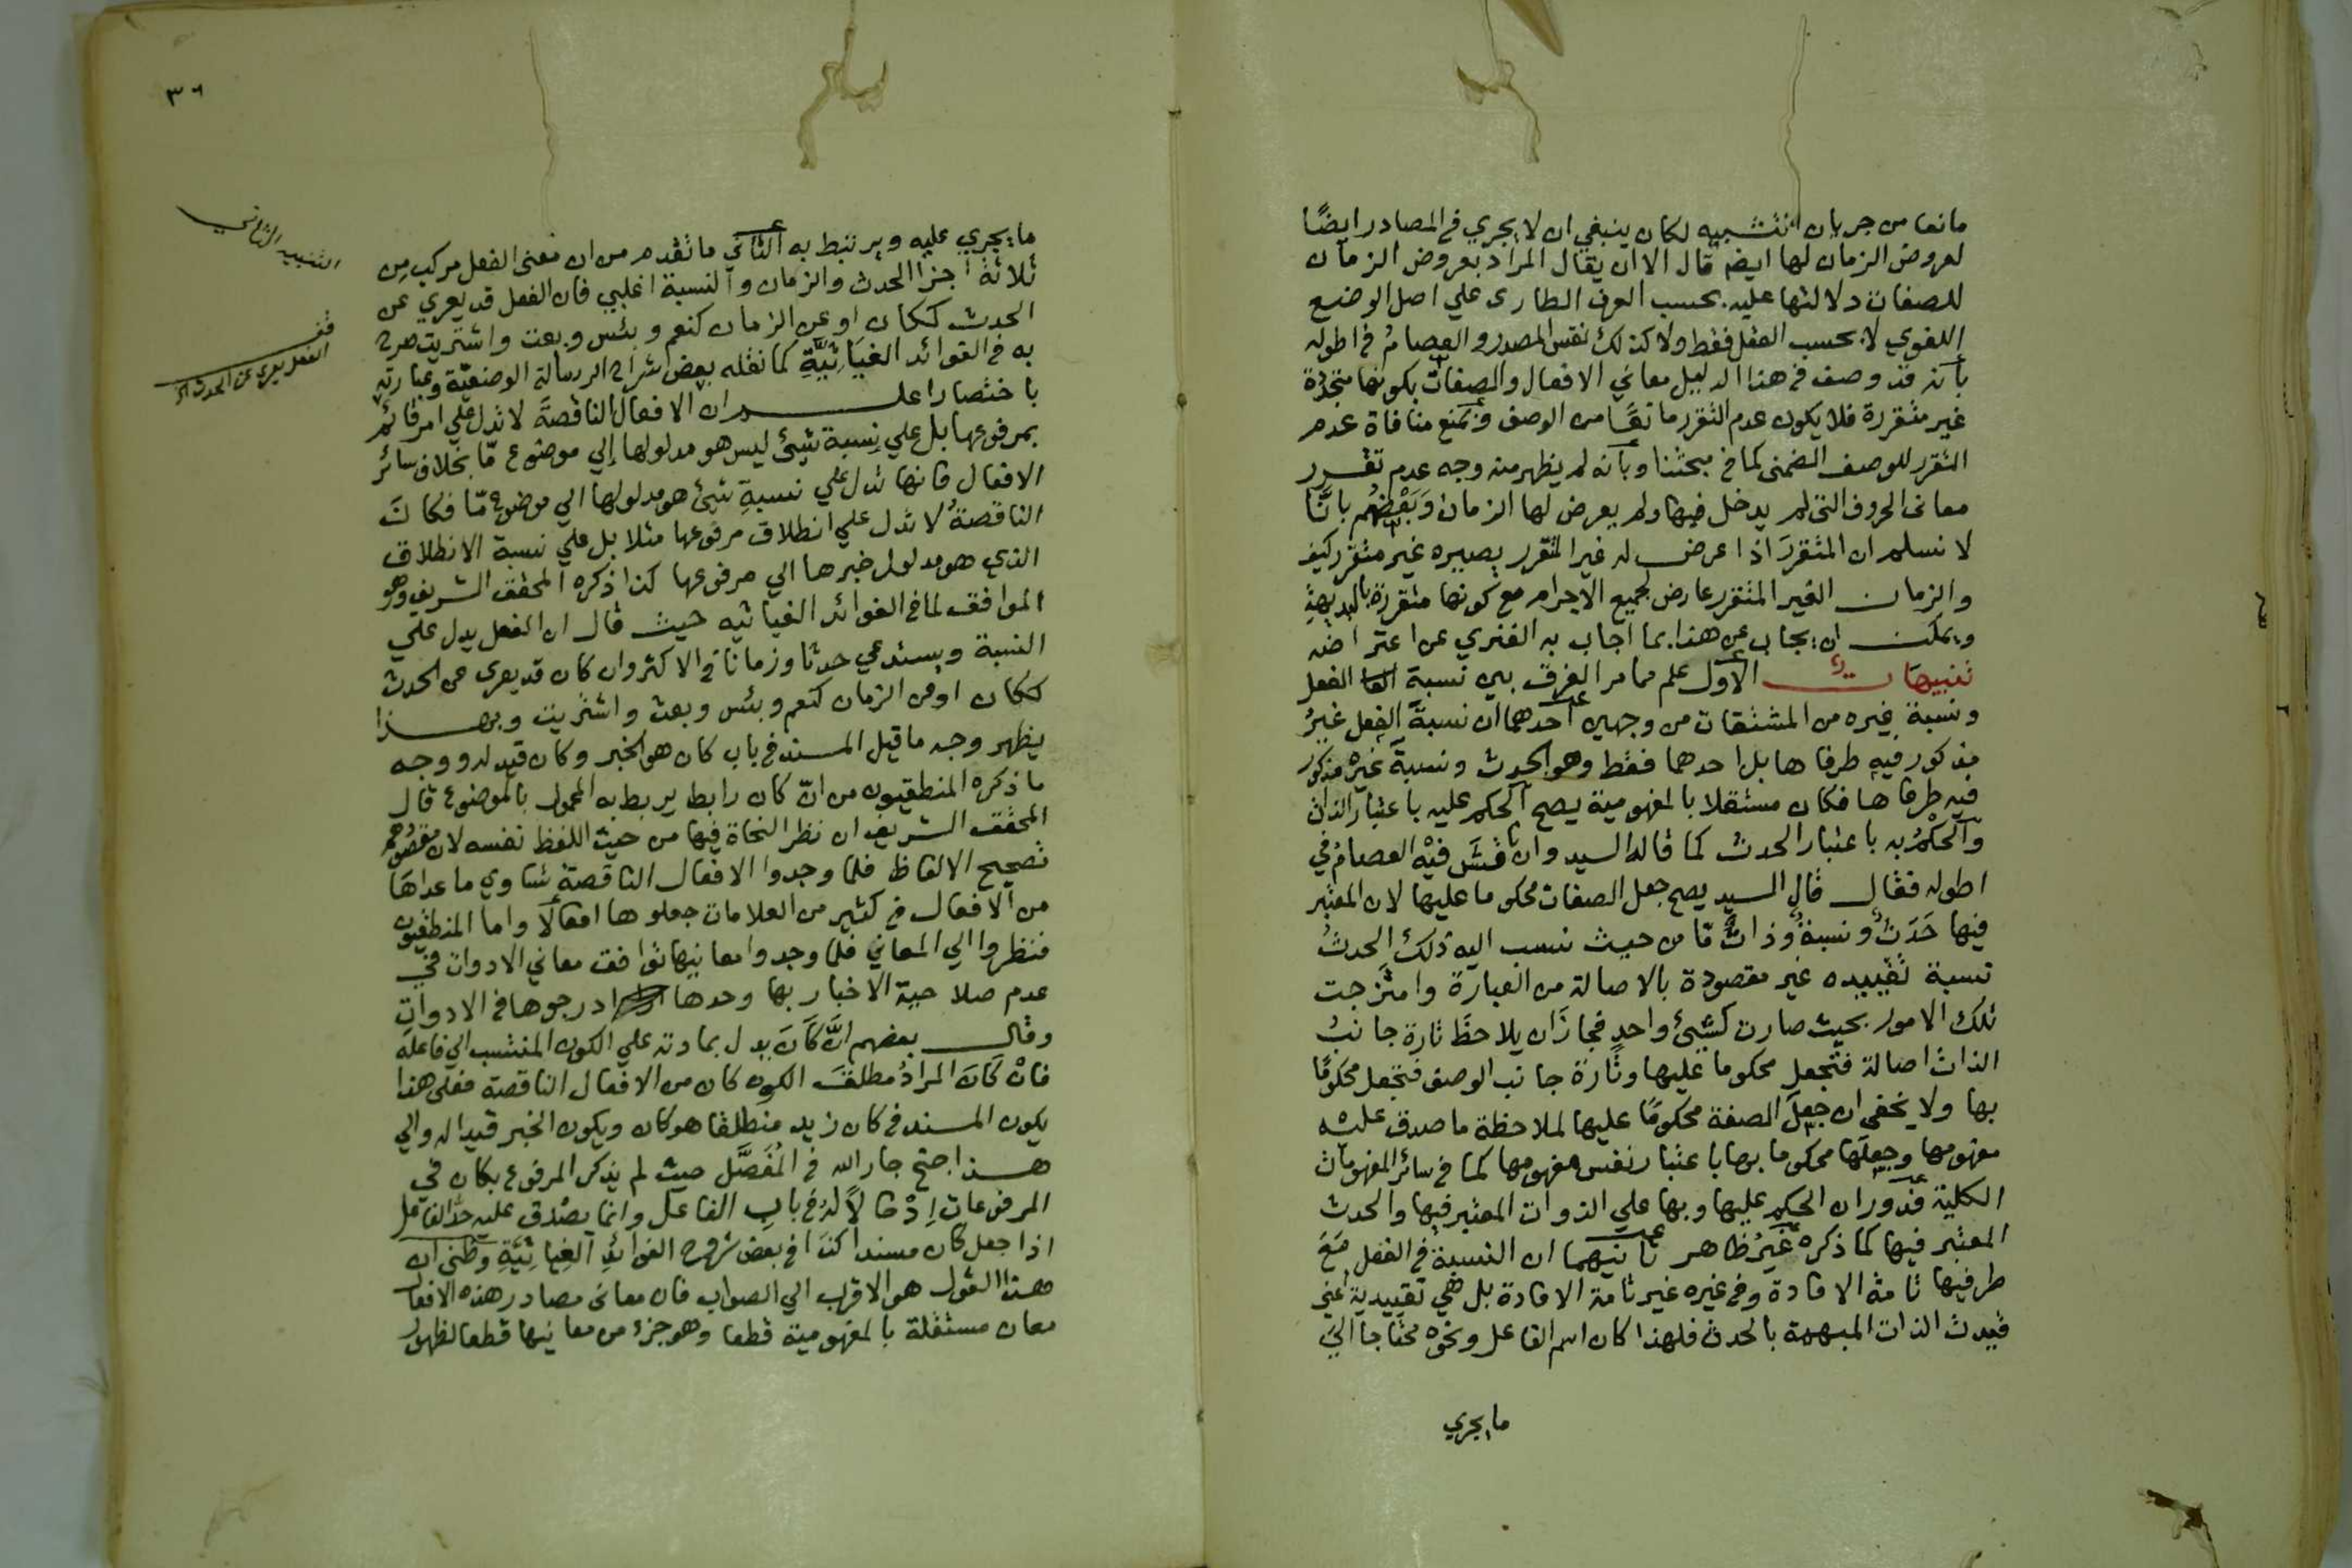 مانعا من جريان التشبيه لكان ينبغي ان لا يجري في المصادر ايضًا
لعروض الزمان لها ايضا قال الا ان يقال المراد بعروض الزمان
للصفات دلالتها عليه بحسب العرف الطارى علي اصل الوضع
اللغوي لا بحسب العقل فقط ولا كذلك نفس المصدر والعصامُ في اطوله
بانه قد وصف في هذا الدليل معاني الافعال والصفات بكونها متجددة
غير متقررة فلا يكون عدم التقرر مانعًا من الوصف ونمنع منافاة عدم
التقرر للوصف الضمنى كما في مبحثنا وبانه لم يظهر منه وجه عدم تقرر
معانى الحروف التى لم يدخل فيها ولم يعرض لها الزمان وَبَعْضُهُم بانَّا
لا نسلم ان المتقررَ اذا عرض له غير المتقرر يصيره غير متقرر كيف
والزمان الغير المتقرر عارض لجميع الاجرام مع كونها متقررة بالبديهة
ويمكن ان يجاب عن هذا بما اجاب به الفنري عن اعتراضه
تنبيهات الاول علم مما مر الفرق بين نسبة الفعل
ونسبة غيره من المشتقات من وجهين احدهما ان نسبةَ الفعل غيرُ
مذكور فيه طرفاها بل احدهما فقط وهو الحدث ونسبةَ غيره مذكور
فيه طرفاها فكان مستقلا بالمفهومية يصح الحكم عليه باعتبار الذات
والحكْمُ به باعتبار الحدث كما قاله السيد وان ناقشَ فيْه العصامُ في
اطوله فقال قال السيد يصح جعل الصفات محكوما عليها لان المعتبر
فيها حَدَثٌ ونسبةٌ وذاتٌ مّا من حيث ننسب اليه ذلك الحدثُ
نسبة تقييديه غير مقصودة بالاصالة من العبارة وامتزجت
تلك الامور بحيث صارت كشيئ واحدٍ فجازَ ان يلاحظَ تارة جانبُ
الذات اصالة فتجعل محكوما عليها وتارة جانب الوصف فتجعل محكومًا
بها ولا يخفى ان جعلَ الصفة محكومًا عليها لملاحظة ما صدق عليه
مفهومها وجعلَها محكوما بها باعتبار نفس مفهومها كما في سائر المفهومات
الكلية فدوران الحكم عليها وبها علي الذوات المعتبر فيها والحدث
المعتبر فيها كما ذكره غيرُ ظاهر ثانيهما ان النسبةَ في الفعل مَعَ
طرفيها تامة الافادة وفي غيره غير تامة الافادة بل هي تقييدية اعني
قيدت الذات المبهمة بالحدث فلهذا كان اسم الفاعل ونحوه محتاجا الي
ما يجري
٣٦
التنبيه الثاني
قف
الفعل يعرى عن الحدث
ما يجري عليه ويرتبط به الثاني ما تقدم من ان معنى الفعل مركب مِن
ثلاثة اجزا الحدث والزمان والنسبة اغلبي فان الفعل قد يعري عن
الحدث ككان او عن الزمان كنعم وبئس وبعت واشتريت صرح
به في الفوائد الغيَاثيَّةِ كما نقله بعض شراح الرسالة الوضعيّة وعبارته
باختصار اعلم ان الافعال الناقصةَ لا تدل علي امر قائم
بمرفوعها بل علي نِسبة شيئ ليس هو مدلولها إلي موضوع مّا بخلاف سائر
الافعال فانها تدل علي نسبةِ شيئ هو مدلولها الي موضوعٍ مّا فكانَ
الناقصةُ لا تدل علي انطلاق مرفوعها مثلا بل علي نسبة الانطلاق
الذي هو مدلول خبرها الي مرفوعها كذا ذكره المحقق الشريف وهو
الموافق لما في الفوائد الغياثيه حيث قال ان الفعل يدل علي
النسبة ويستدعي حدثا وزمانا في الاكثر وان كان قد يعرى عن الحدث
ككان او عن الزمان كنعم وبئس وبعت واشتريت وبهذا
يظهر وجه ما قيل المسند في باب كان هو الخبر وكان قيد له ووجه
ما ذكره المنطقيون من انّ كان رابط يربط به المحمول بالموضوع قال
المحقق الشريف ان نظر النحاة فيها من حيث اللفظ نفسه لان مقصودهم
تصحيح الالفاظ فلما وجدوا الافعال الناقصة تساوي ما عداها
من الافعال في كثير من العلامات جعلوها افعالًا واما المنطقيون
فنظروا الي المعاني فلما وجدوا معانيها توافق معاني الادوات في
عدم صلاحية الاخبار بها وحدها ادرجوها في الادوات
وقال بعضهم انَّ كَانَ يدل بمادته علي الكون المنتسب الي فاعله
فانْ كَانَ المرادُ مطلقَ الكون كان من الافعال الناقصة فعلى هذا
يكون المسند في كان زيد منطلقا هو كان ويكون الخبر قيدا له والي
هذا جنح جار الله في المُفَصَّل حيث لم يذكر المرفوع بكان في
المرفوعات إدْخالًا لهُ في باب الفاعل وانما يصْدق عليه حدّ الفاعل
اذا جعل كان مسندا كذا في بعض شروح الفوائدِ الغِياثيَّةِ وظني ان
هذا القول هو الاقرب الي الصواب فان معانى مصادر هذه الافعال
معان مستقلة بالمفهومية قطعا وهو جزء من معانيها قطعا لظهور